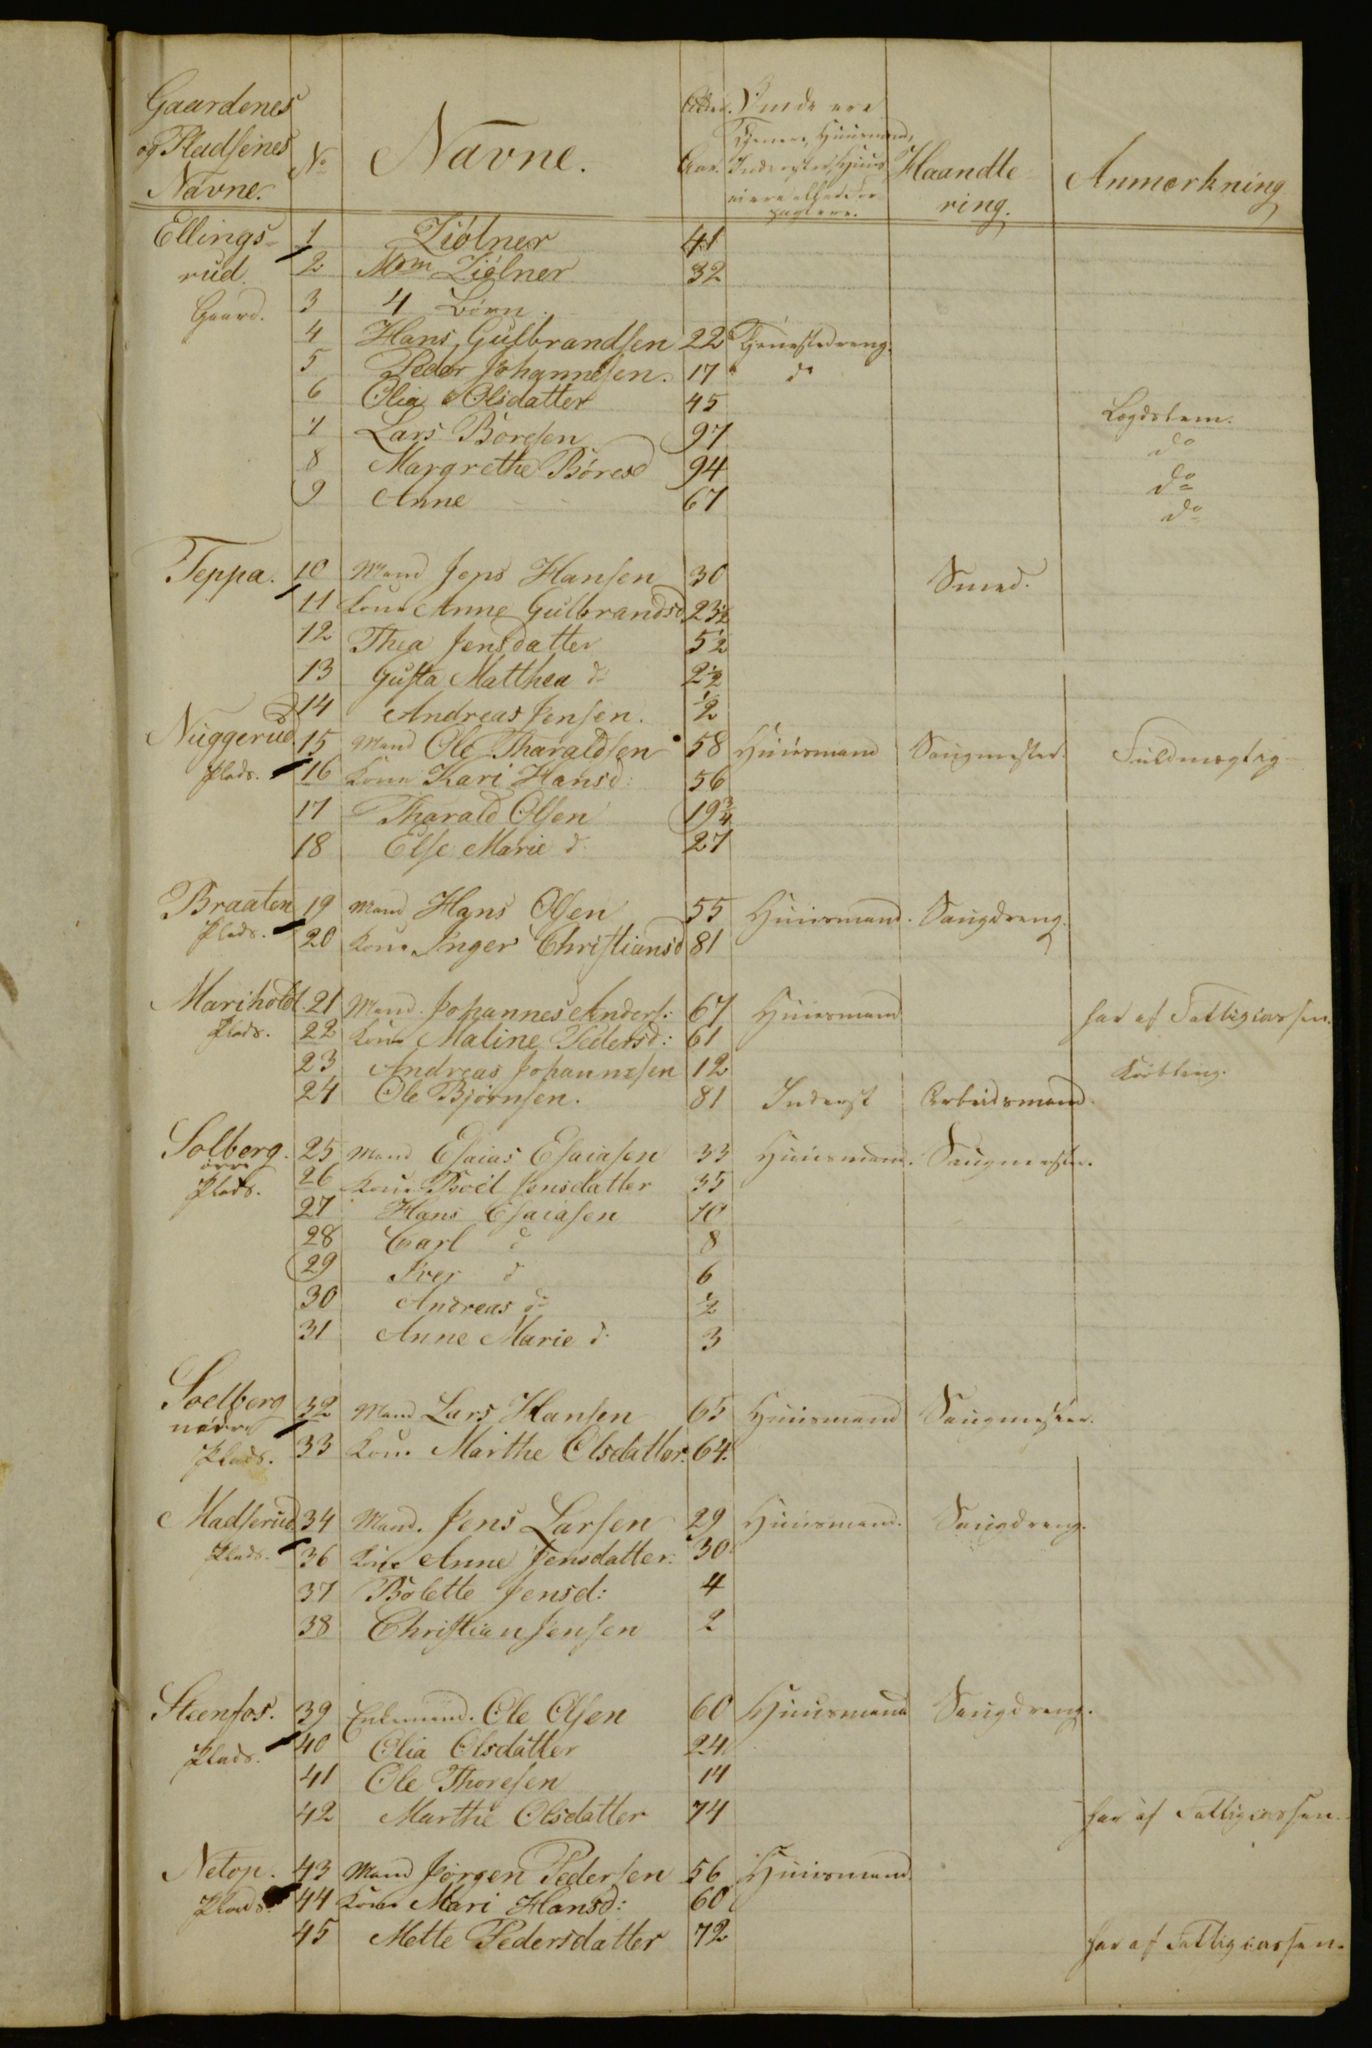 Gaardenes og Pladsenes Navne. No Navne. Alder. Aar. Om de ere Tjenere, Huusmænd, Inderster, Huus Haandtering. Anmærkning
Ellingsrud. Gaard. 1 Ziølner 41
2 Mdm Ziølner 32
3 4 Børn.
4 Hans Gulbrandsen 22 Tjenestedreng.
5 Peder Johannesen. 17 do
6 Olia Olsdatter 45 Lægdslem.
7 Lars Børesen 97 do
8 Margrethe Børesd 94 do
9 Anne 67 do
Teppa. 10 Mand Jens Hansen 30 Smed.
11 Kone Anne Gulbrandsd 23½
12 Thea Jensdatter 5½
13 Gusta Matthea do 2½
14 Andreas Jensen. ½
Nuggerud Plads. 15 Mand Ole Tharaldsen 58 Huusmand Saugmester. Fuldmægtig
16 Kone Kari Hansd: 56
17 Tharald Olsen 19¾
18 Else Marie d: 27
Braaten Plads. 19 Mand Hans Olsen 55 Huusmand. Saugdreng.
20 Kone Inger Christiansd 81
Mariholdt. Plads. 21 Mand. Johannes Anders: 67 Huusmand har af Fattigcassen.
22 Kone Maline Pedersd: 61
23 Andreas Johannesen 12
24 Ole Bjørnsen. 81 Inderst Arbeidsmand.
Solberg. Plads. 25 Mand Esaias Esaiasen 33 Huusmand. Saugmester.
26 Kone Boel Jensdatter 35
27 Hans Esaiasen 10
28 Carl d 8
29 Iver d 6
30 Andreas do ½
31 Anne Marie d: 3
Soelberg nørre Plads. 32 Mand Lars Hansen 65 Huusmand Saugmester.
33 Kone Marthe Olsdatter: 64.
Madserud Plads. 34 Mand. Jens Larsen 29 Huusmand. Saugdreng.
36 Kone Anne Jensdatter: 30
37 Bolette Jensd: 4
38 Christian Jensen 2
Steenfos. Plads. 39 Enkemand. Ole Olsen 60 Huusmand Saugdreng.
40 Olia Olsdatter 24
41 Ole Thoresen 14
42 Marthe Olsdatter 74 har af Fattigcassen.
Netop. Plads. 43 Mand Jørgen Pedersen 56 Huusmand.
44 Kone Mari Hansd: 60
45 Mette Pedersdatter 72 har af Fattigcassen.